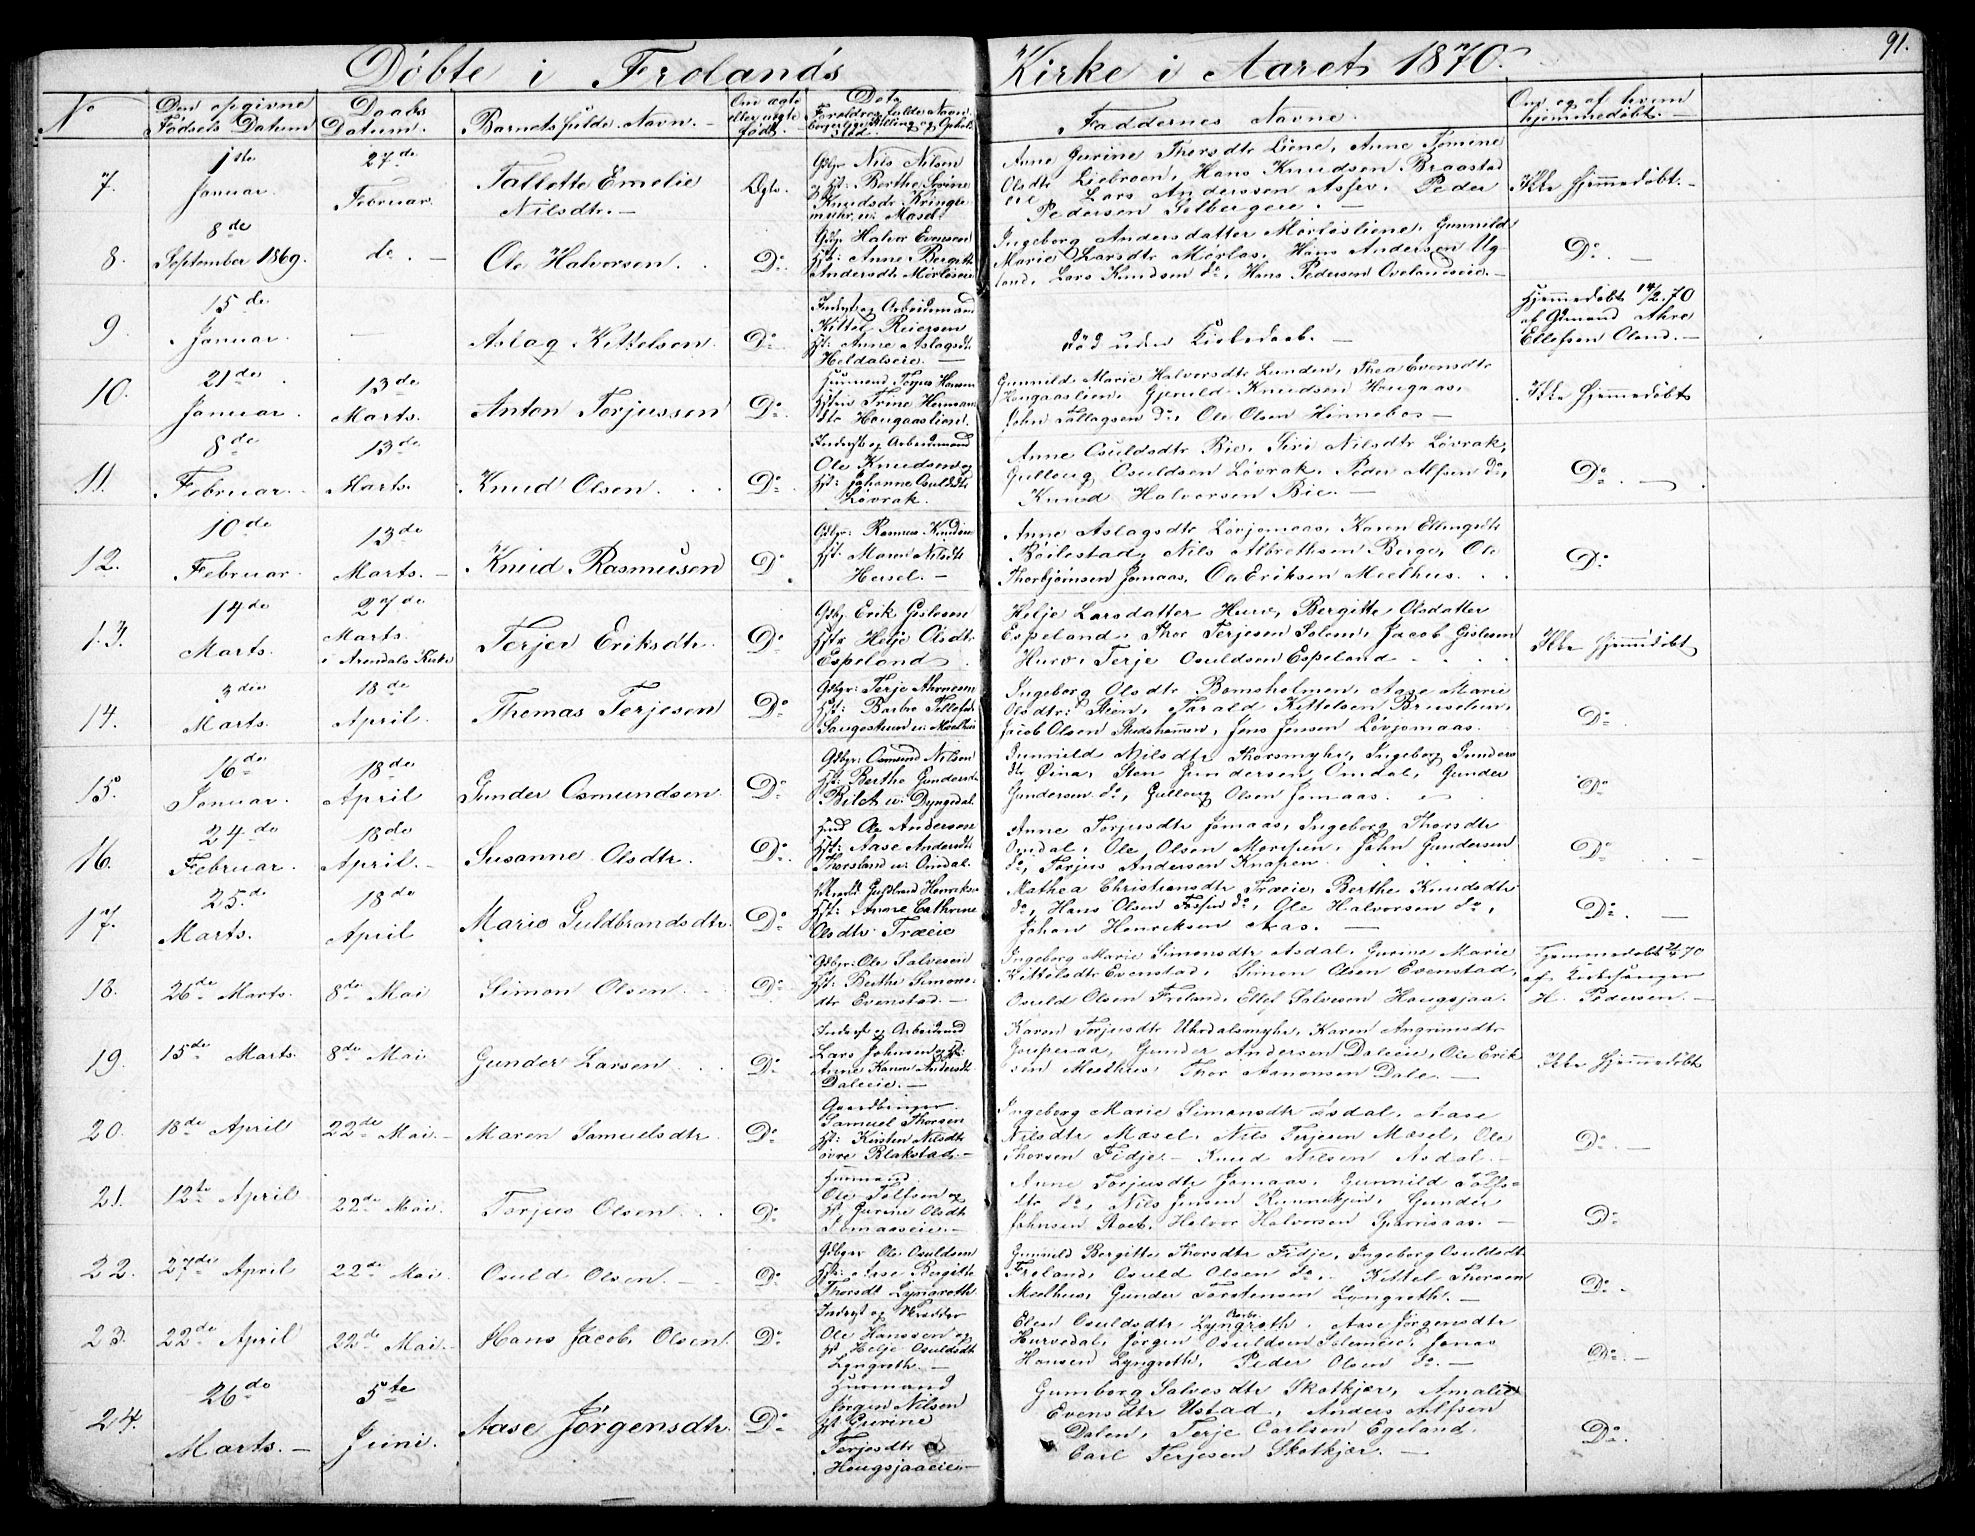 Döbte i Frolands
Kirke i Aaret 1870.
91.
No
Den opgivne
Fødsels Datum
Daabs
Datum.
Barnets fulde Navn.
Om ægte
eller uægte
født.
Dets
Forældres fulde Navn
Faddernes Navne.
Om og af hvem
hjemmedøbt.
7.
1ste
Januar.
27de
Februar.
Tallette Emelie
Nilsdtr.
Ægte.
Gdbr Nils Nilsen
Hst: Berthe Serine
Knudsdr Kringle-
myhr, u. Mosel
Anne Gurine Thorsdtr Liene, Anne Tomine
Olsdtr Liebroen, Hans Knudsen Braastad
eie Lars Anderssen Asper. Peder
Pedersen Solbergeie.
Ikke Hjemmedøbt.
8.
8de
September 1869.
do.
Ole Halvorsen.
Do
Gdbr Halvor Evensen
Hst: Anne Bergitte
Andersdtr Mörlösene
Ingeborg Andersdatter Mörlösliene, Gunnild
Marie Larsdtr Mörlas, Hans Andersen Ug-
land, Lars Knudsen do, Hans Pedersen Ovelandseie.
Do.
9.
15de
Januar.
Aslag Kittelsen.
Do
Inderst og Arbeidsmand
Kittel Reiersen
Hst: Anne Aslagsdtr
Heldalseie.
död uden Kirkedaab.
Hjemmedöbt 14/2.70
af Gmand Ahre
Ellefsen Oland.
10.
21de
Januar.
13de
Marts.
Anton Torjussen
Do
Husmand Torjus Hansen
Hstru Trine Herman
dtr Haugaaslien.
Gunnild Marie Halvorsdtr Lunden, Thea Evensdtr
Haugaaslien, Gjeruld Knudsen Haugaas,
John Tallagsen do, Ole Olsen Hinnebos
Ikke Hjemmedöbt
11.
8de
Februar.
13de
Marts.
Knud Olsen.
Do
Inderst og Arbeidsmand
Ole Knudsen og
Hst: Johanne Osuldsdtr
Lövrak.
Anne Osuldsdtr Bie, Siri Nilsdtr Lövrak,
Gulloug Osuldsen Lövrak. Peder Alfsen do,
Knud Halvorsen Bie.
Do
12.
10de
Februar.
13de
Marts.
Knud Rasmusen
Do
Gdbr: Rasmus Knudsen
Hst: Maren Nilsdtr
Heisel.
Anne Aslagsdtr Lövjomaas, Karen Ellingsdtr
Böilestad, Nils Albrethsen Berge, Ole
Thorbjörnsen Jomaas, Ole Eriksen Meelhus.
Do
13.
14de
Marts.
27de
Marts.
i Arendals Kirke
Terjer Eriksdtr.
Do
Gdbr. Erik Gislesen
Hst Helje Olsdtr
Espeland
Helje Larsdatter Hurv, Bergitte Olsdatter
Espeland, Thor Terjesen Solem, Jacob Gislesen
Hurv, Terje Osuldsen Espeland
Ikke Hjemmedöbt
14.
3die
Marts.
18de
April.
Thomas Terjesen
Do
Gdbgr: Terje Ahresen
Hst: Barbro Tellefsdtr
Saugestuen u. Meelhus
Ingeborg Olsdtr Bomsholmen, Aase Marie
Olsdtr: Stien, Tarald Kittelsen Bruselien,
Jacob Olsen, Jens Jensen Lövjomaas.
Do
15.
16de
Januar.
18de
April
Gunder Osmundsen
Do
Gdbgr. Osmund Nilsen
Hst: Berthe Gundersdr
Bilet u. Dyngedal
Gunnild Nilsdtr Thorsmyhr, Ingeborg Gunders
dtr Öina, Sten Gundersen Omdal, Gunder
Gundersen do, Gulloug Olsen Jomaas.
Do
16.
24de
Februar.
18de
April.
Susanne Olsdtr.
Do
Hmd Ole Andersen
Hst: Aase Andersdtr
Thorsland u. Omdal.
Anne Torjusdtr Jomaas, Ingeborg Thorsdtr
Omdal, Ole Olsen Moripen, John Gundersen
do, Torjus Andersen Knapen.
Do
17.
25.de
Marts.
18de
April
Marie Guldbrandsdtr.
Do
Guldbrand Henriksen
Hst: Anne Cathrine
Olsdtr Træeie
Mathea Christiansdtr Træeie, Berthe Knudsdtr
do, Hans Olsen Fosseie do, Ole Halvorsen do,
Johan Henriksen Aas.
Do.
18.
26de Marts.
8de Mai
Simon Olsen.
Do
Gdbgr: Ole Salvesen
Hst: Berthe Simons-
dtr Evenstad.
Ingeborg Marie Simonsdtr Asdal, Gurine Marie
Kittelsdtr Evenstad, Simon Olsen Evenstad,
Osuld Olsen Froland, Ellef Salvesen Haugsjaa.
Hjemmedöbt 2/4 70
af Kirkesanger
H. Pedersen.
19.
15de Marts.
8de Mai
Gunder Larsen
Do
Inderst og Arbeidsmand
Lars Johnsen og Hst:
Anne Karine Andersdtr
Daleeie.
Karen Torjusdtr Uhrdalsmyhr, Karen Angrimsdtr
Jouperaa, Gunder Andersen Daleeie, Ole Erik
sen Meelhus, Thor Aanonsen Dale.
Ikke Hjemmedöbt
20.
18de April
22de Mai.
Maren Samuelsdtr.
Do
Gaardbruger
Samuel Thorsen
Hst: Kirsten Nilsdtr
övre Blakstad.
Ingeborg Marie Simonsdtr Asdal, Aase
Nilsdtr Mosel, Nils Terjesen Mosel, Ole
Thorsen Fidje. Knud Nilsen Asdal.
Do
21.
12te April
22de Mai.
Torjus Olsen.
Do
Husmand
Ole Tolfsen og
H. Gurine Olsdtr
Jomaaseie.
Anne Torjusdtr Jomaas, Gunnild Tolfs-
dtr do, Nils Jensen, Gunder
Johnsen Roeb, Halvor Halvorsen
Do
22.
27de April
22de Mai.
Osuld Olsen.
Do
Gdbgr Ole Osuldsen
Hst: Aase Bergitte
Thorsdt Lyngroth.
Gunnild Bergitte Thorsdtr Fidje, Ingeborg Osuldsdt
Froland, Osuld Olsen do, Kittel Thorsen
Meelhus, Gunder Torstensen Lyngroth.
Do.
23.
22de April
22de Mai.
Hans Jacob Olsen
Do
Inderst og
Ole Hanssen og
H Helje Osuldsdt
Lyngroth.
Elen Osuldsdtr Lyngroth, Aase Jörgensdtr
Hurvedal, Jörgen Osuldsen Solemeie, Jonas
Hansen Lyngroth, Peder Olsen do.
Do.
24.
26de
Marts.
5te
Juni.
Aase Jörgensdtr.
Do
Husmand
Jörgen Nilsen
H Gurine
Terjesdtr
Haugsjaaeie
Gumborg Salvesdtr Skotkjær, Amalie
Evensdtr Ustad, Anders Alfsen
Dalen, Terje Carlsen Egeland,
Carl Terjesen Skotkjær.
Do.